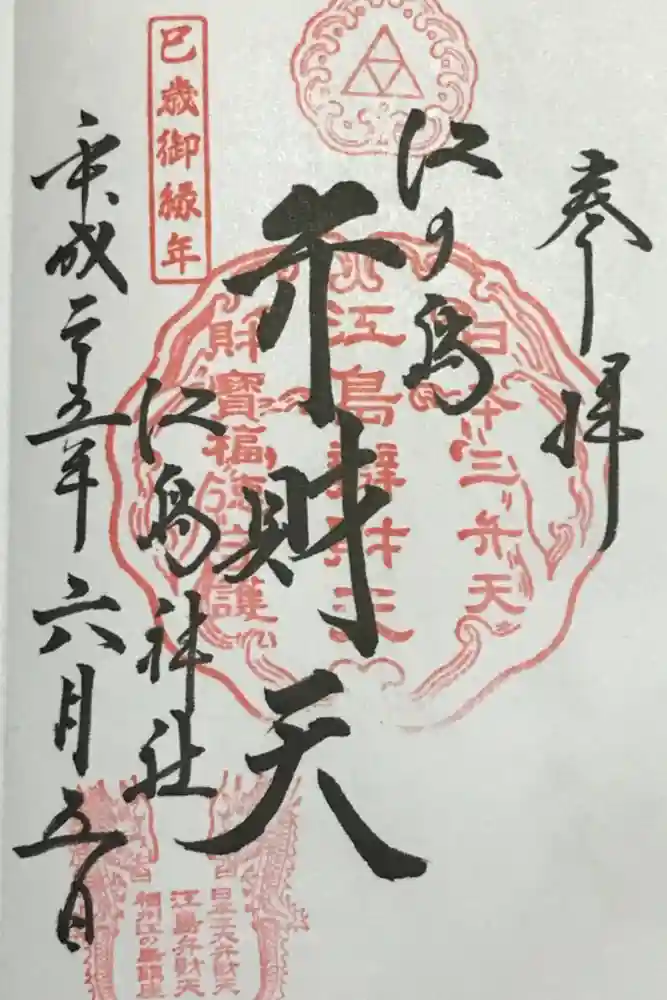 奉拝
江の島
弁財天
江島神社
平成二十五年六月五日
巳歳御縁年
日本三弁天
江島辯財天
財寶福徳守護
日本三大弁財天
江島弁財天